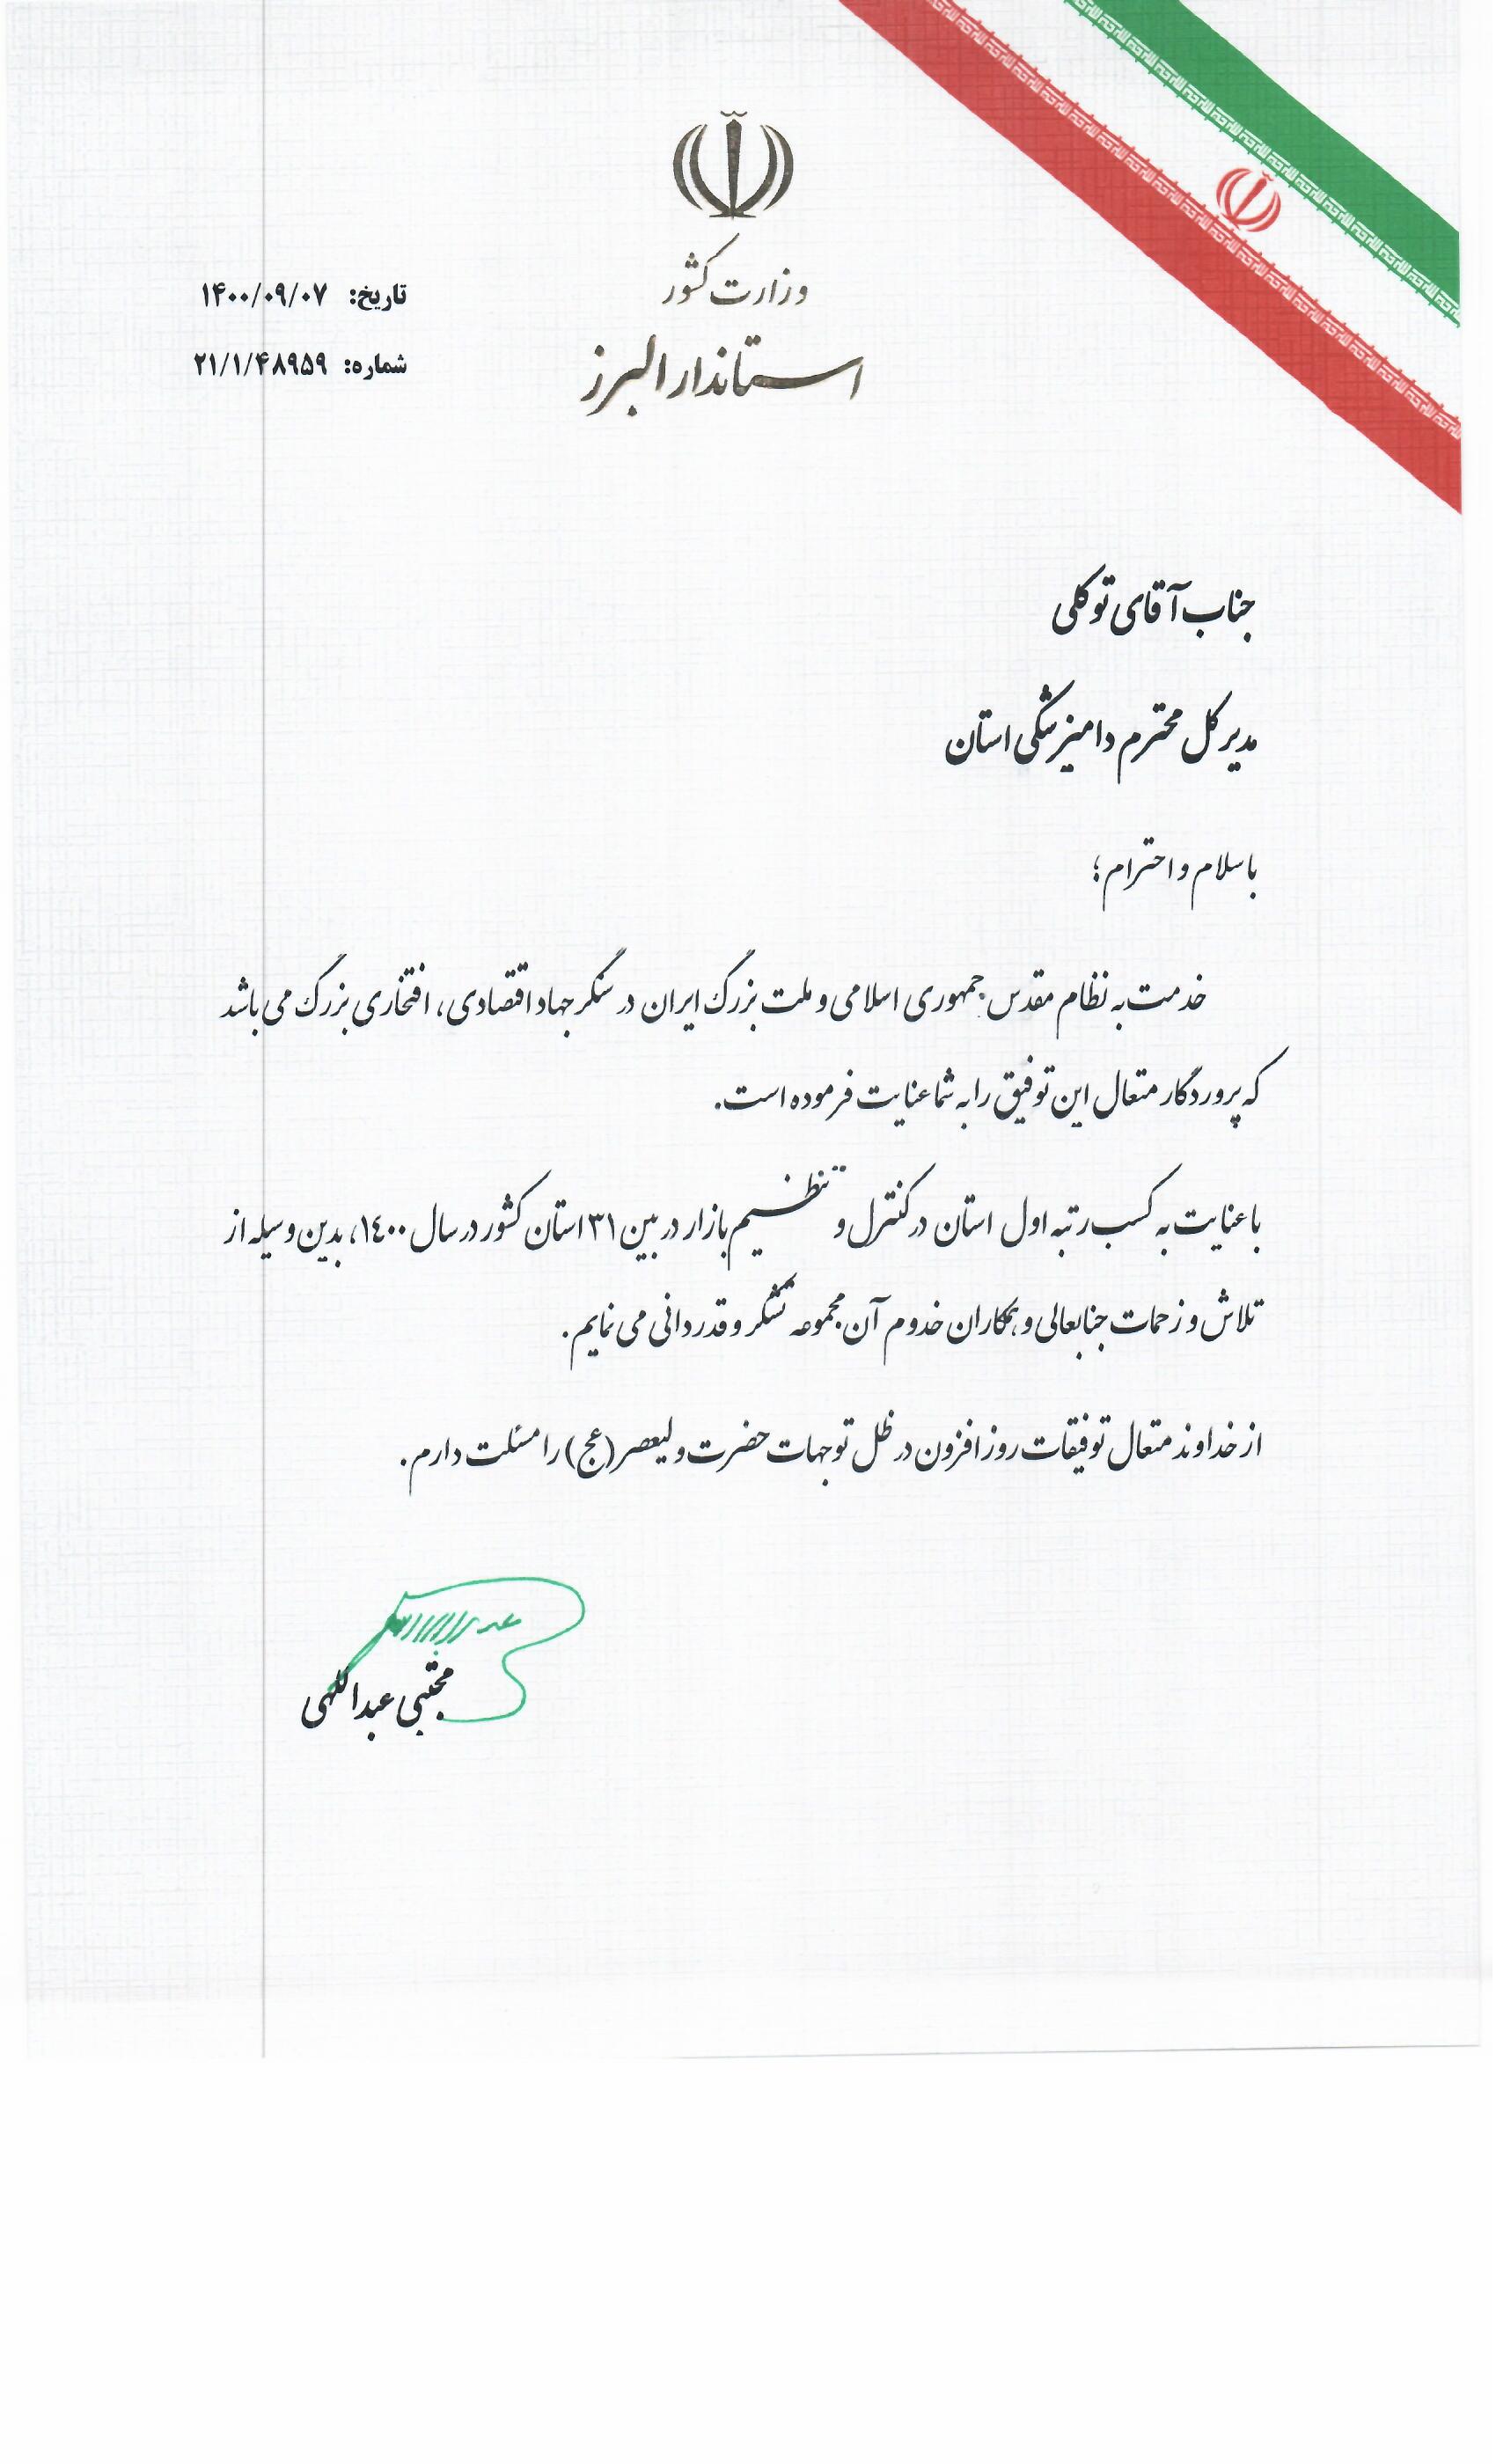 وزارت کشور
استاندار البرز
تاریخ: ۱۴۰۰/۰۹/۰۷
شماره: ۲۱/۱/۴۸۹۵۹
جناب آقای توکلی
مدیر کل محترم دامپزشکی استان
با سلام و احترام؛
خدمت به نظام مقدس جمهوری اسلامی و ملت بزرگ ایران در سنگر جهاد اقتصادی، افتخاری بزرگ می باشد
که پروردگار متعال این توفیق را به شما عنایت فرموده است.
با عنایت به کسب رتبه اول استان در کنترل و تنظیم بازار در بین ۳۱ استان کشور در سال ۱۴۰۰، بدین وسیله از
تلاش و زحمات جنابعالی و همکاران خدوم آن مجموعه تشکر و قدردانی می نمایم.
از خداوند متعال توفیقات روز افزون در ظل توجهات حضرت ولیعصر (عج) را مسئلت دارم.
مجتبی عبداللهی